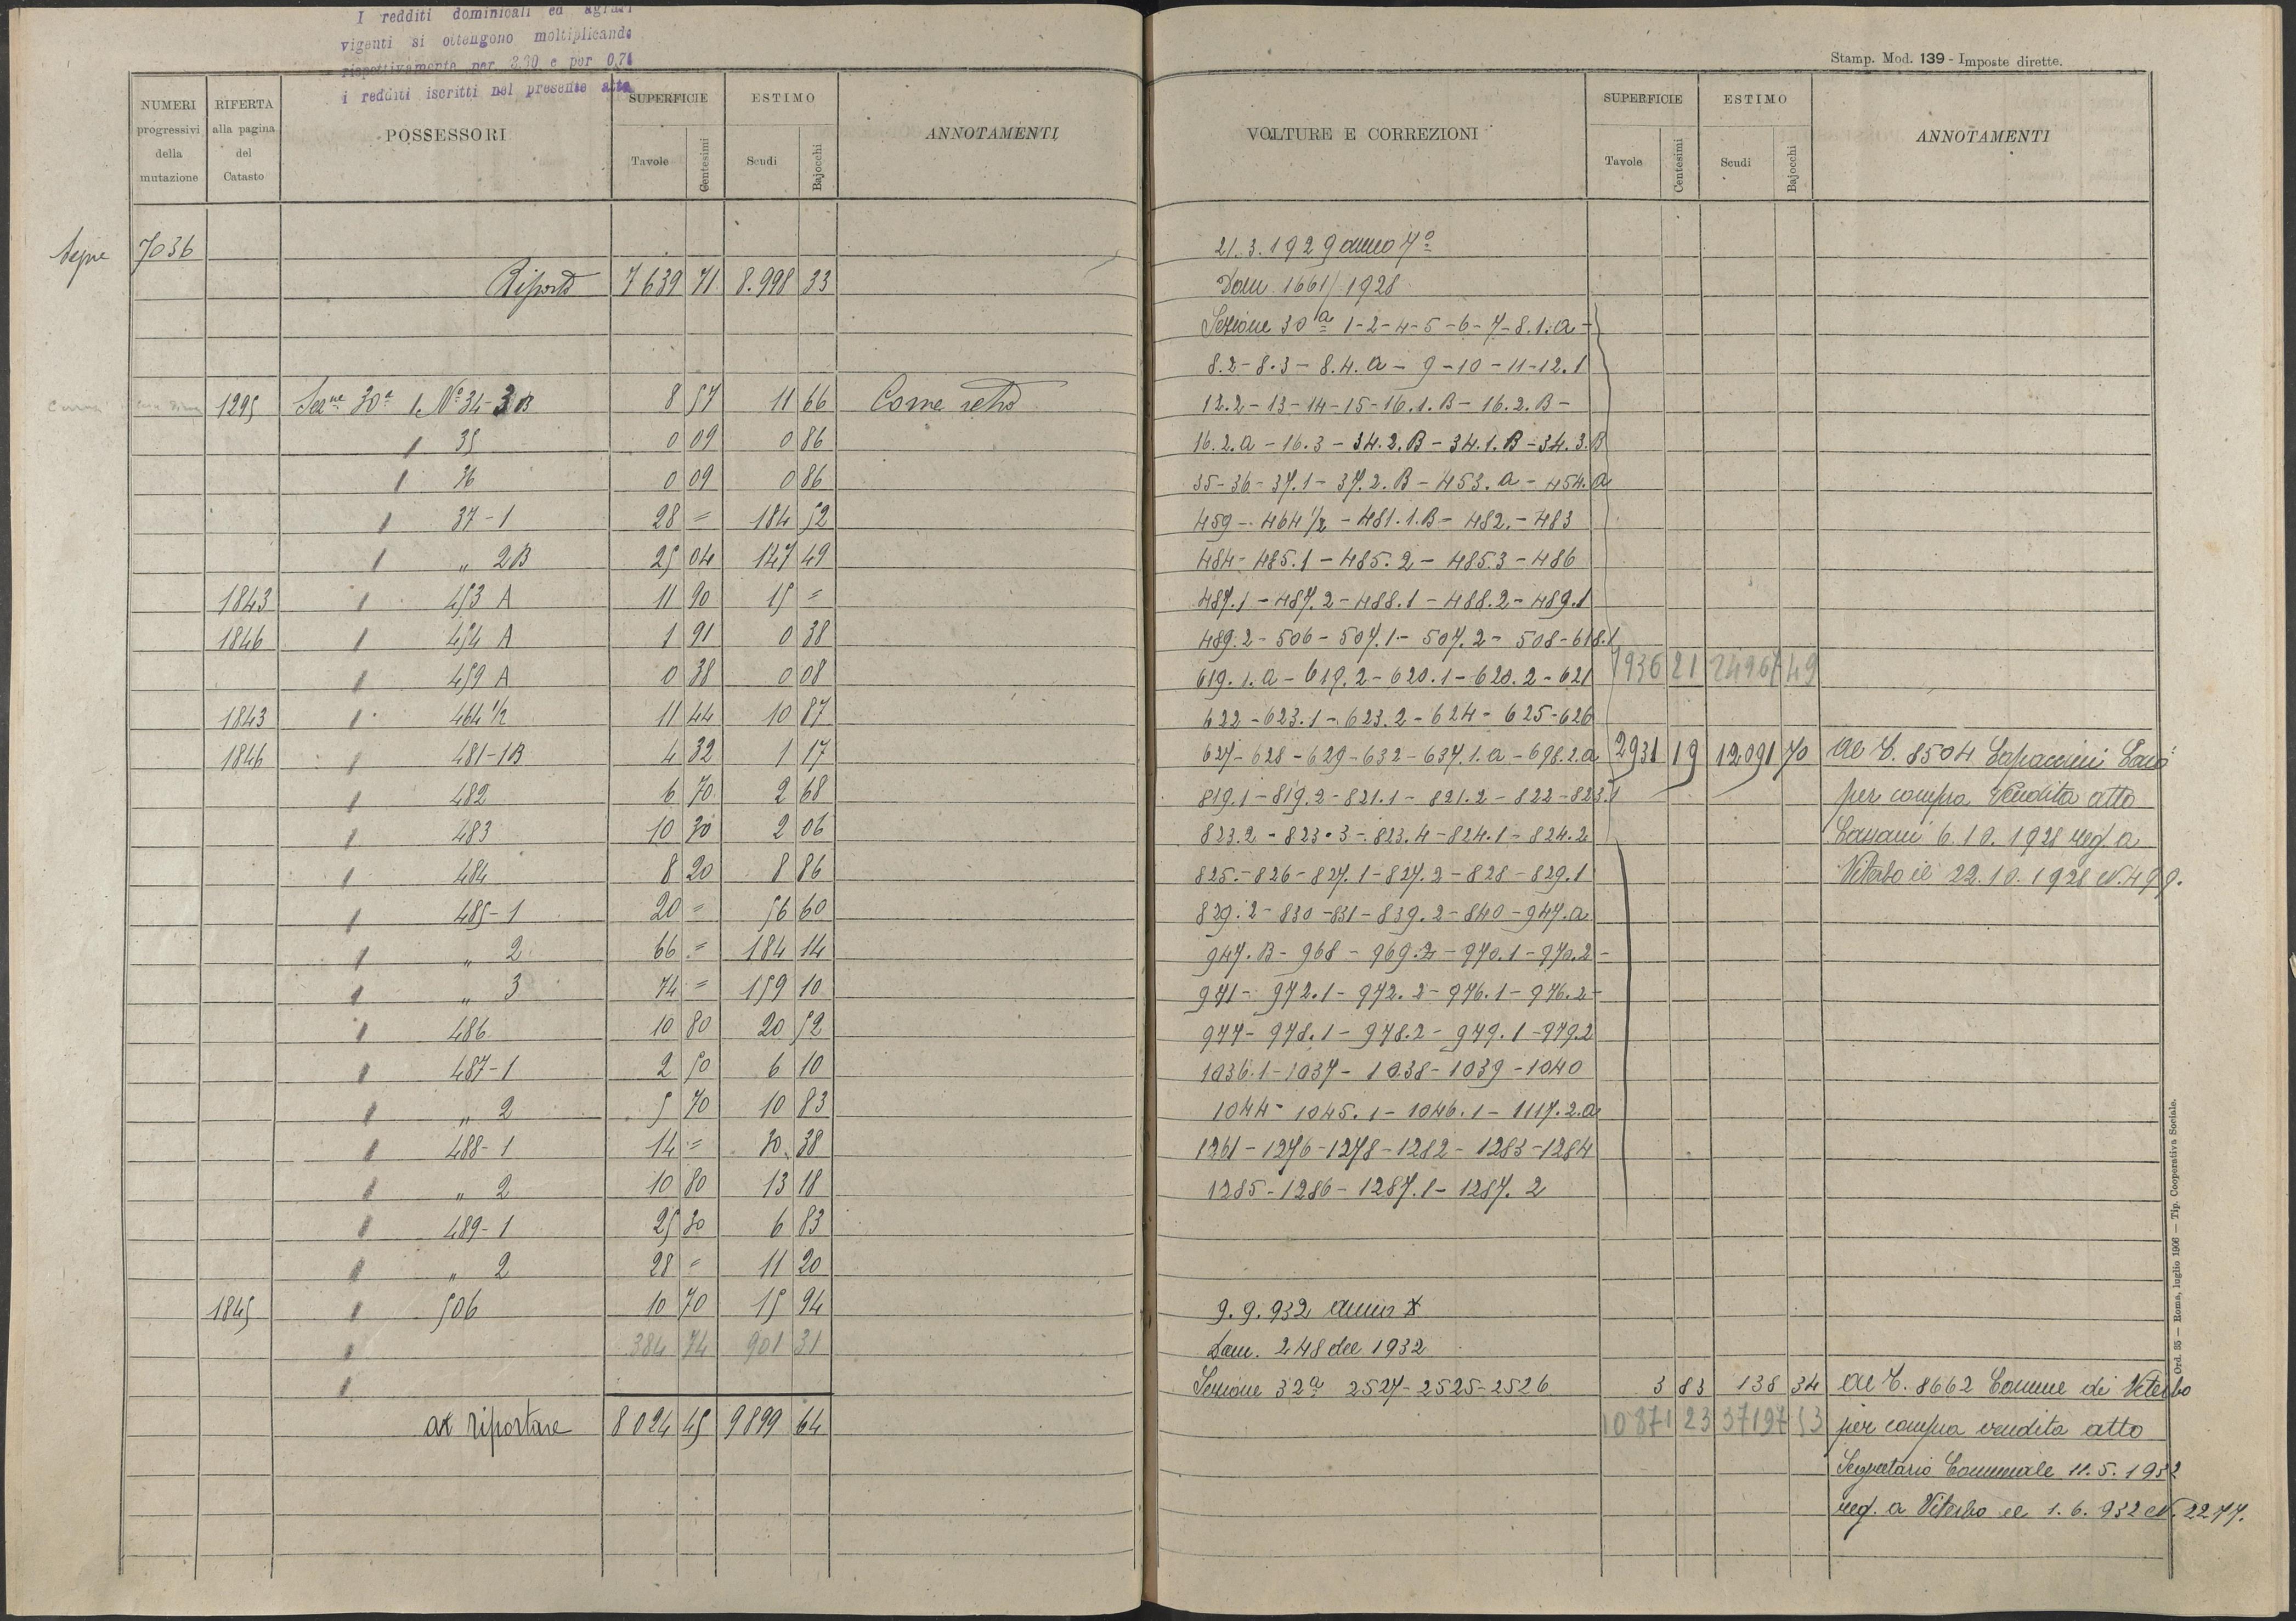 I redditi dominicali ed agrari
vigenti si ottengono moltiplicando
rispettivamente per 3,30 e per 0,71
i redditi iscritti nel presente atto
NUMERI progressivi della mutazione
RIFERTA alla pagina del Catasto
POSSESSORI
SUPERFICIE
Tavole Centesimi
ESTIMO
Scudi Bajocchi
ANNOTAMENTI
Segue 7036
Riporto 7639 71 8.998 33
1295 Sezne 30a 1. No 34-3B 8 57 11 66 Come retro
35 0 09 0 86
36 0 09 0 86
37-1 28 = 184 52
" 2B 25 04 147 49
1843 453 A 11 90 15 =
1846 454 A 1 91 0 38
459 A 0 38 0 08
1843 464 1/2 11 44 10 87
1846 481-1B 4 32 1 17
482 6 70 2 68
483 10 30 2 06
484 8 20 8 86
485-1 20 = 56 60
" 2 66 = 184 14
" 3 74 = 159 10
486 10 80 20 52
487-1 2 50 6 10
" 2 5 70 10 83
488-1 14 = 30 38
" 2 10 80 13 18
489-1 25 30 6 83
" 2 28 = 11 20
1845 506 10 70 15 94
384 74 901 31
a riportare 8024 45 9899 64
Stamp. Mod. 139 - Imposte dirette.
VOLTURE E CORREZIONI
SUPERFICIE
Tavole Centesimi
ESTIMO
Scudi Bajocchi
ANNOTAMENTI
21.3.1929 anno 7o
Dom. 1661/1928
Sezione 30a 1-2-4-5-6-7-8.1.a-
8.2-8.3-8.4.a-9-10-11-12.1
12.2-13-14-15-16.1.B-16.2.B-
16.2.a-16.3-34.2.B-34.1.B-34.3.B
35-36-37.1-37.2.B-453.a-454.a
459-464 1/2-481.1.B-482.-483
484-485.1-485.2-485.3-486
487.1-487.2-488.1-488.2-489.1
489.2-506-507.1-507.2-508-618.1
619.1.a-619.2-620.1-620.2-621 7936 21 24967 49
622-623.1-623.2-624-625-626
627-628-629-632-637.1.a-698.2.a 2931 19 12091 70 al C. 8504
819.1-819.2-821.1-821.2-822-823.1 per compra Vendita atto
823.2-823.3-823.4-824.1-824.2 6.10.1928 reg. a
825-826-827.1-827.2-828-829.1 Viterbo il 22.10.1928 N. 499.
829.2-830-831-839.2-840-947.a
947.B-968-969.2-970.1-970.2-
971-972.1-972.2-976.1-976.2-
977-978.1-978.2-979.1-979.2
1036.1-1037-1038-1039-1040
1044-1045.1-1046.1-1117.2.a
1261-1276-1278-1282-1283-1284
1285-1286-1287.1-1287.2
9.9.932 anno X
Dom. 248 del 1932
Sezione 32a 2527-2525-2526 3 83 138 34 al C. 8662 Comune di Viterbo
10871 23 37197 53 per compra vendita atto
Segretario Comunale 11.5.1932
reg. a Viterbo il 1.6.932 N. 2277.
Ord. 35 — Roma, luglio 1906 — Tip. Cooperativa Sociale.